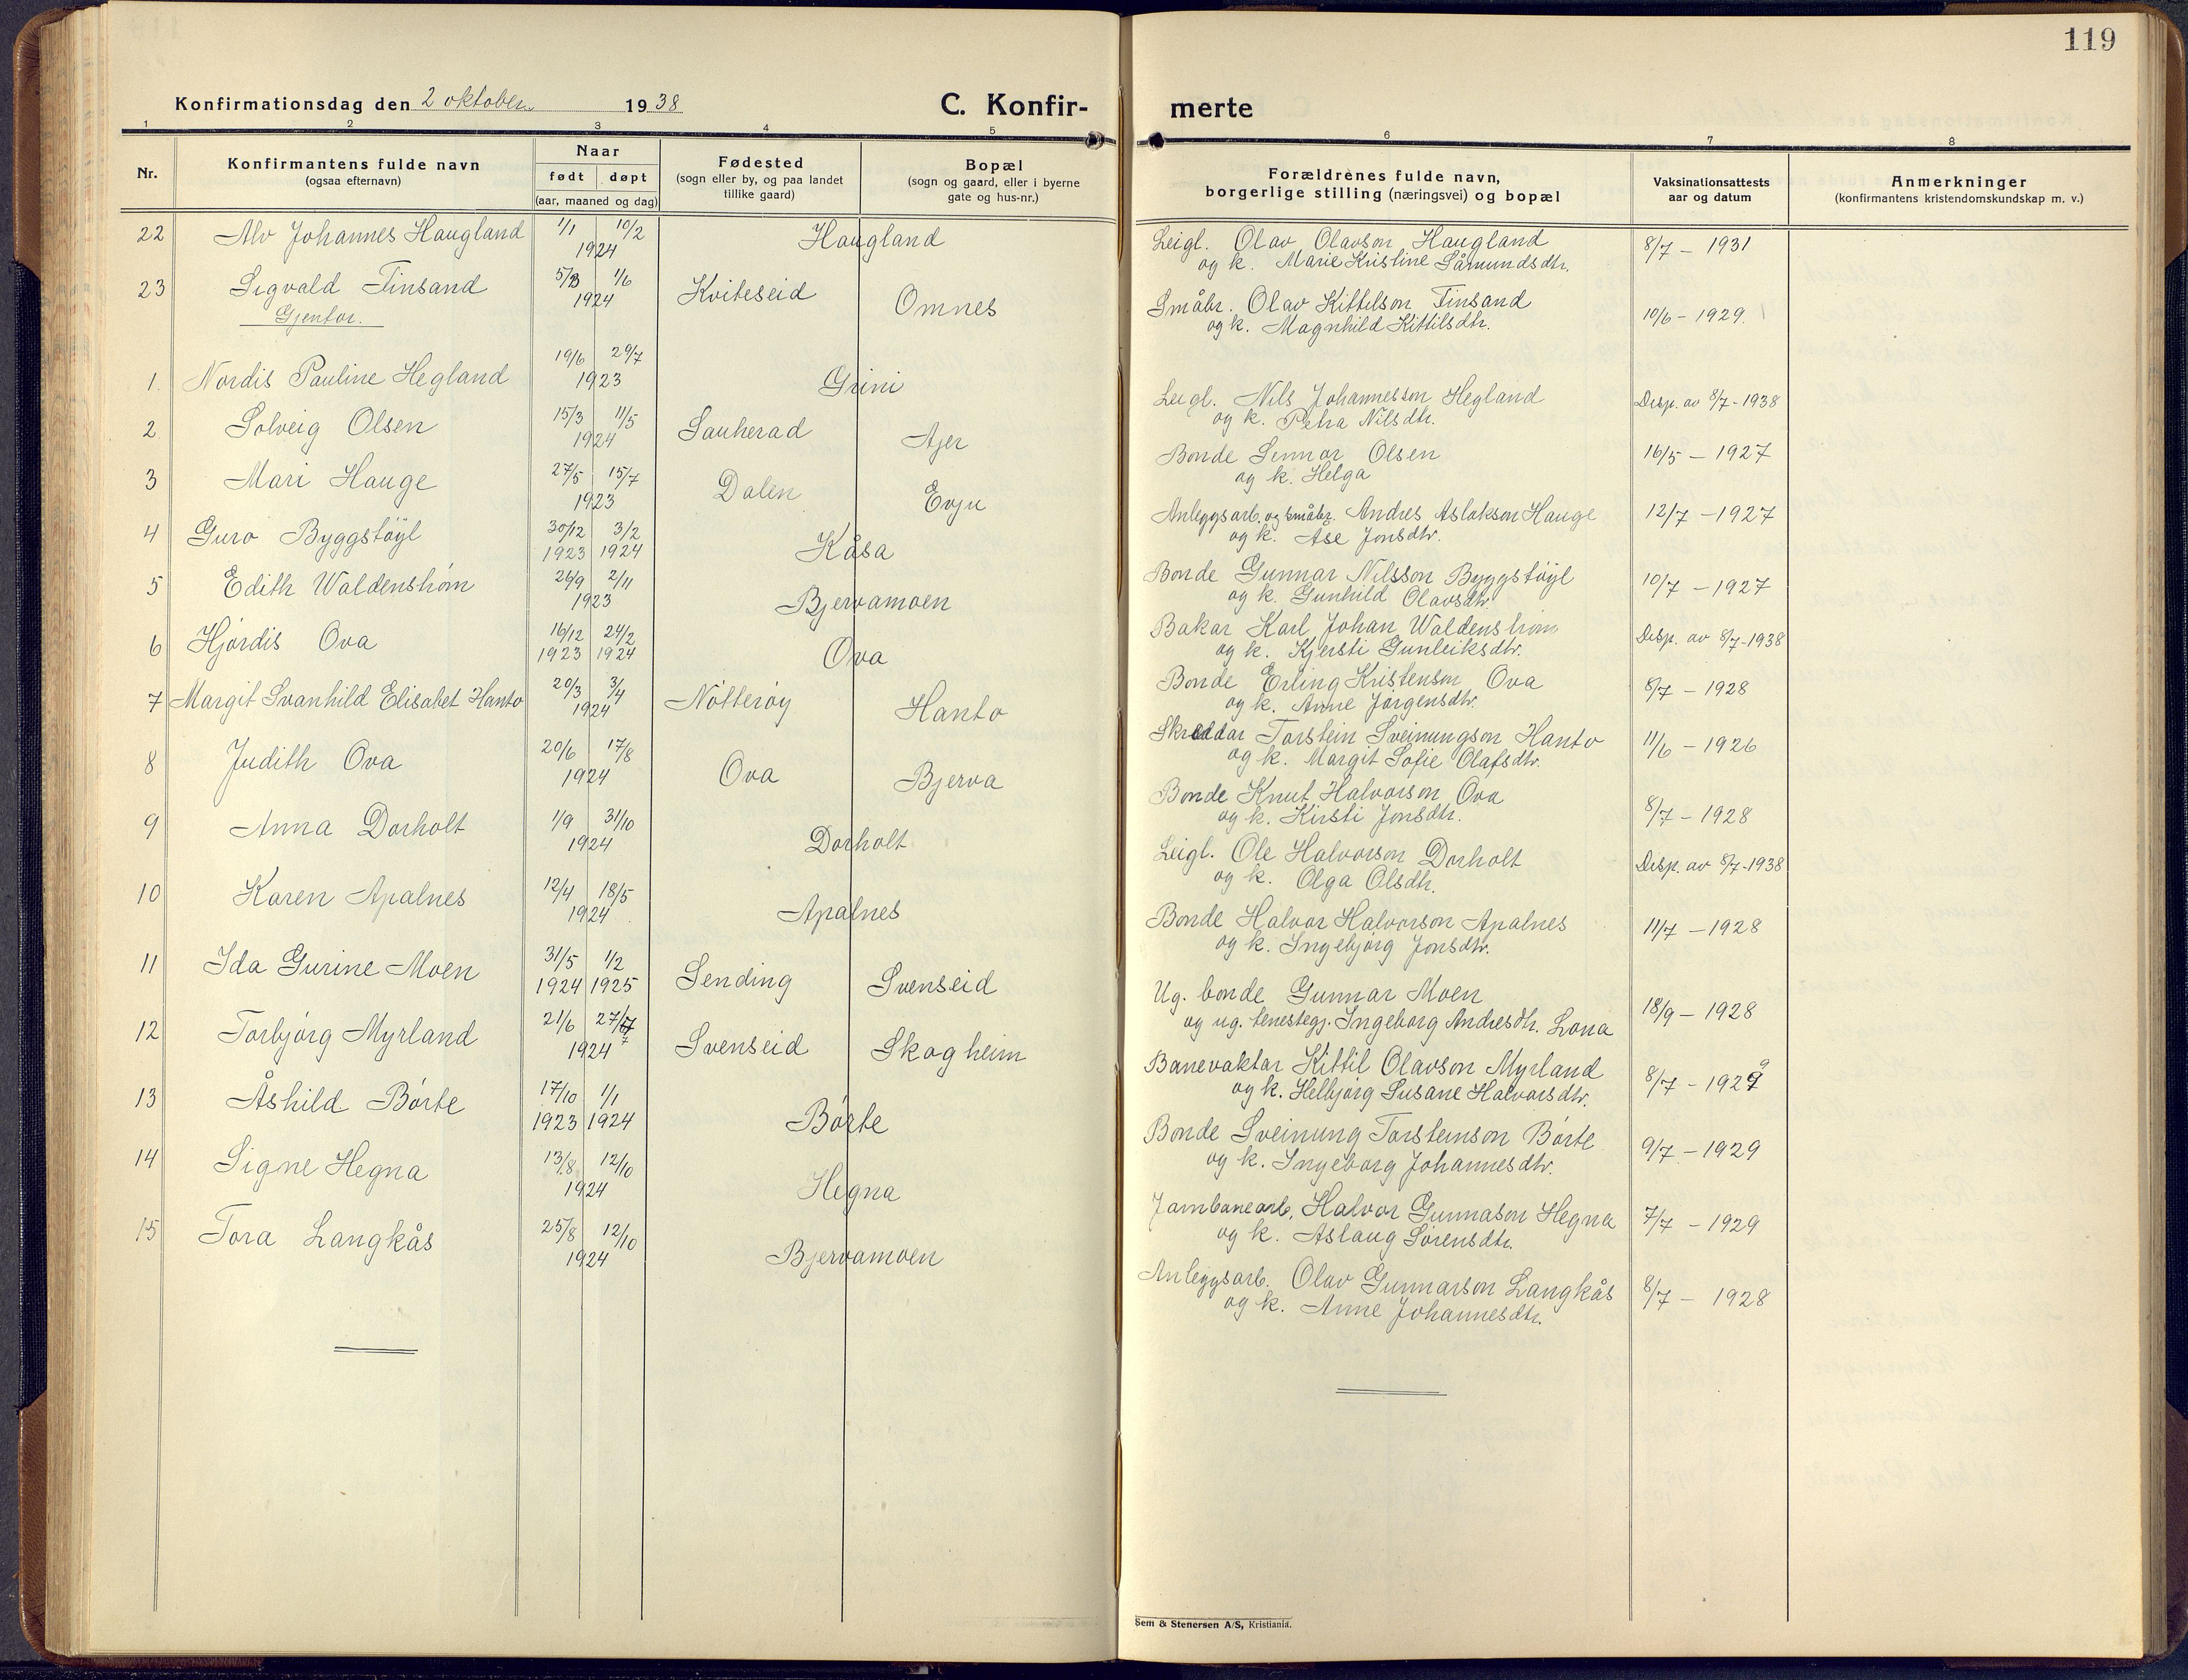 119
Konfirmationsdag den 2 oktober 1938
C. Konfirmerte
1 2 3 4 5 6 7 8
Nr.
Konfirmantens fulde navn
(ogsaa efternavn)
Naar
født døpt
(aar, maaned og dag)
Fødested
(sogn eller by, og paa landet
tillike gaard)
Bopæl
(sogn og gaard, eller i byerne
gate og hus-nr.)
Forældrenes fulde navn,
borgerlige stilling (næringsvei) og bopæl
Vaksinationsattests
aar og datum
Anmerkninger
(konfirmantens kristendomskundskap m. v.)
22 Alv Johannes Haugland 1/1 10/2 1924 Haugland Leigl. Olav Olavson Haugland 8/7 – 1931
og k. Marie Kristine Såmundsdtr.
23 Sigvald Tinsand 5/3 1/6 1924 Kviteseid Omnes Småbr. Olav Kittilson Tinsand 10/6 – 1929
og k. Magnhild Kittilsdtr.
Gjentor.
1. Nordis Pauline Hegland 19/6 29/7 1923 Grini Leigl. Nils Johannesson Hegland Disp. av 8/7-1938
og k. Petra Nilsdtr.
2 Solveig Olsen 15/3 11/5 1924 Sauherad Ajer Bonde Gunnar Olsen 16/5 – 1927
og k. Helga
3 Mari Hauge 27/5 15/7 1923 Dalen Evju Anleggsarb. og småbr. Andres Aslakson Hauge 12/7 – 1927
og k. Ase Jonsdtr.
4 Guro Byggstøyl 30/12 1923 3/2 1924 Kåsa Bonde Gunnar Nilsson Byggstøyl 10/7 – 1927
og k. Gunhild Olavsdtr.
5 Edith Waldenstrøm 26/9 2/11 1923 Bjervamoen Bakar Karl Johan Waldenstrøm Disp. av 8/7-1938
og k. Kjersti Gunleiksdtr.
6 Hjørdis Ova 16/12 1923 24/2 1924 Ova Bonde Erling Kristenson Ova 8/7 – 1928
og k. Anne Jørgensdtr.
7 Margit Svanhild Elisabet Hanto 20/3 3/4 1924 Nøtterøy Hanto Skreddar Torstein Sveinungson Hanto 11/6 – 1926
og k. Margit Sofie Olafsdtr.
8 Judith Ova 20/6 17/8 1924 Ova Bjerva Bonde Knut Halvorson Ova 8/7 – 1928
og k. Kirsti Jonsdtr.
9 Anna Dorholt 1/9 31/10 1924 Dorholt Leigl. Ole Halvorson Dorholt Disp. av 8/7-1938
og k. Olga Olsdtr.
10 Karen Apalnes 12/4 18/5 1924 Apalnes Bonde Halvor Halvorson Apalnes 11/7 – 1928
og k. Ingebjørg Jonsdtr.
11 Ida Gurine Moen 31/5 1924 1/2 1925 Sending Svenseid Ug. bonde Gunnar Moen 18/9 – 1928
og ug. tenestegj. Ingeborg Andresdtr. Lona
12 Torbjørg Myrland 21/6 27/7 1924 Svenseid Skogheim Banevaktar Kittil Olavson Myrland 8/7 – 1929
og k. Helbjørg Susane Halvorsdtr.
13 Åshild Børte 17/10 1923 1/1 1924 Børte Bonde Sveinung Torsteinson Børte 9/7 – 1929
og k. Ingeborg Johannesdtr.
14 Signe Hegna 13/8 12/10 1924 Hegna Jarnbanearb. Halvor Gunnason Hegna 7/7 – 1929
og k. Aslaug Sørensdtr.
15 Tora Langkås 25/8 12/10 1924 Bjervamoen Anleggsarb. Olav Gunnarson Langkås 8/7 – 1928
og k. Anne Johannesdtr.
Sem & Stenersen A/S, Kristiania.